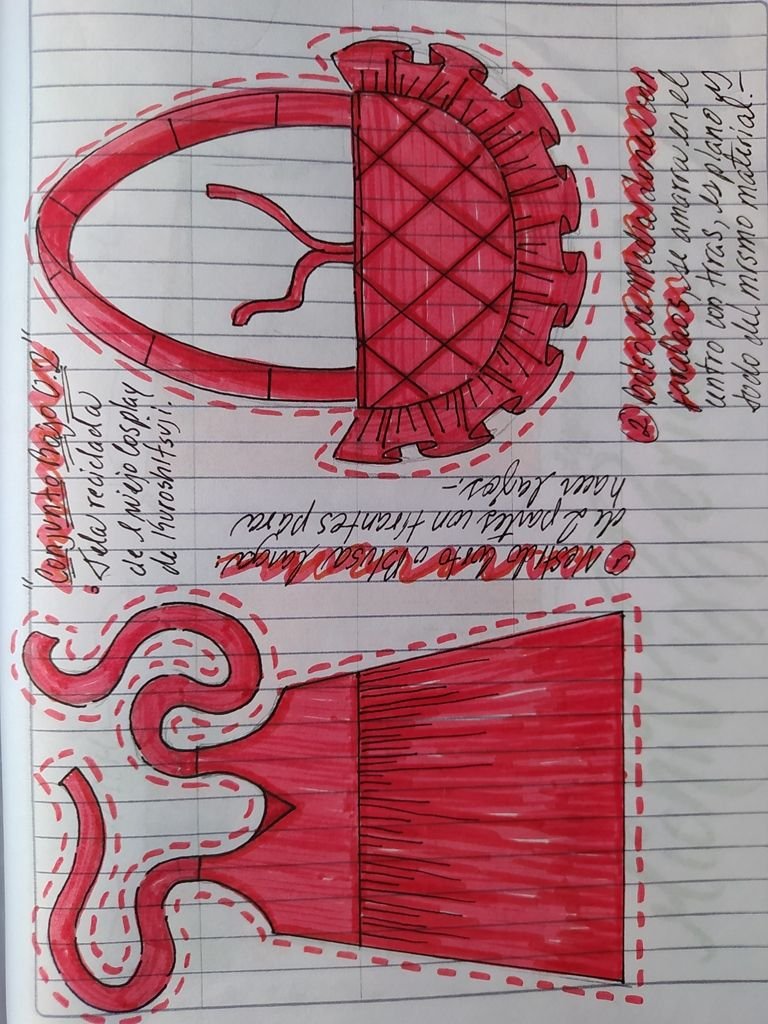 "Conjunto Rojo V.2"
° Tela reciclada
de el viejo cosplay
de Kuroshitsuji.
① Vestido Corto o Blusa larga:
de 2 partes con tirantes para
hacer lazos.-
② Bolso de media luna con
se amarra en el
centro con tiras, es plano y es
todo del mismo material.-